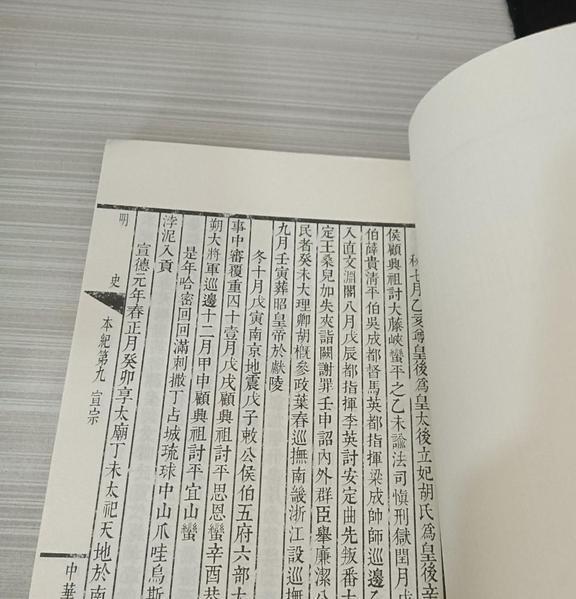 秋七月乙亥尊皇後為皇太後立妃胡氏為皇後辛
侯顧興祖討大藤峽蠻平之乙未諭法司慎刑獄閏月戊
伯薛貴清平伯吳成都督馬英都指揮梁成帥師巡邊乙
入直文淵閣八月戊辰都指揮李英討安定曲先叛番
定王桑兒加失夾詣闕謝罪壬申詔內外群臣舉廉潔公
民者癸未大理卿胡概參政葉春巡撫南畿浙江設巡
九月壬寅葬昭皇帝於獻陵
冬十月戊寅南京地震戊子敕公侯伯五府六部大
事中審覆重囚十壹月戊戌顧興祖討平思恩蠻辛酉恭
朔大將軍巡邊十二月甲申顧興祖討平宜山蠻
是年哈密回回滿剌撒丁占城琉球中山爪哇烏斯
浡泥入貢
宣德元年春正月癸卯享太廟丁未太祀天地於南
明史 本紀第九 宣宗 中華